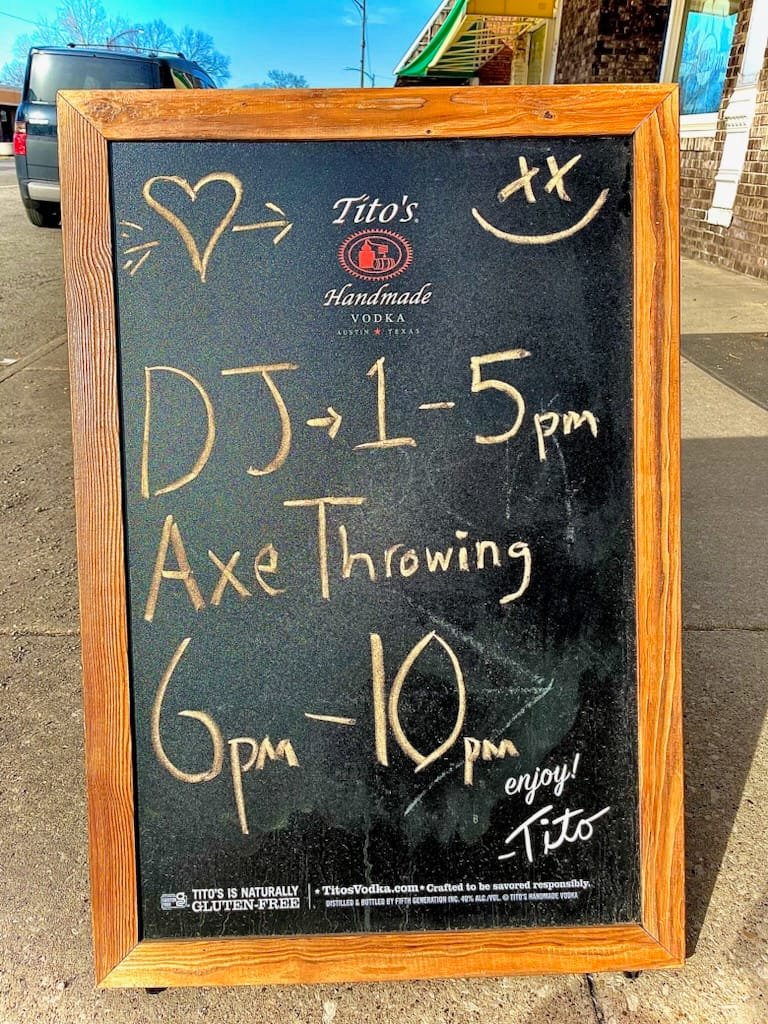 Tito's
Handmade
VODKA
AUSTIN ★ TEXAS
DJ→1-5pm
Axe Throwing
6pm-10pm
enjoy!
-Tito
TITO'S IS NATURALLY
GLUTEN-FREE
• TitosVodka.com • Crafted to be savored responsibly.
DISTILLED & BOTTLED BY FIFTH GENERATION INC. 40% ALC./VOL. © TITO'S HANDMADE VODKA